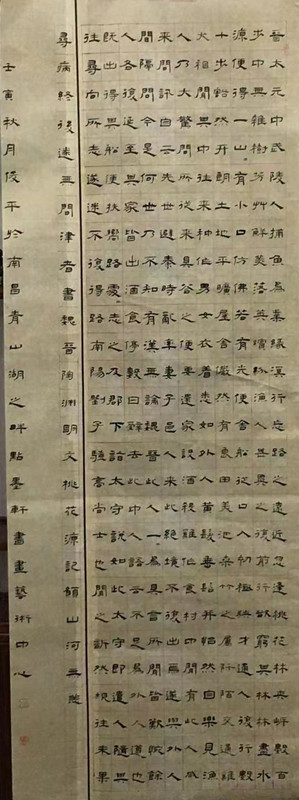 晉太元中武陵人捕魚為業緣溪行忘路之遠近忽逢桃花林夾岸數百
步中無雜樹芳草鮮美落英繽紛漁人甚異之復前行欲窮其林林盡水
源便得一山山有小口仿佛若有光便舍船從口入初極狹才通人復行數
十步豁然開朗土地平曠屋舍儼然有良田美池桑竹之屬阡陌交通雞
犬相聞其中往來种作男女衣着悉如外人黃髮垂髫並怡然自樂見漁
人乃大驚問所從來具答之便要還家設酒殺雞作食村中聞有此人咸
來問訊自云先世避秦時亂率妻子邑人來此絕境不復出焉遂與外人
間隔問今是何世乃不知有漢無論魏晉此人一一為具言所聞皆歎惋餘
人各復延至其家皆出酒食停數日辭去此中人語云不足為外人道也
既出得其船便扶向路處處志之及郡下詣太守說如此太守即遣人隨其
往尋向所志遂迷不復得路南陽劉子驥高尚士也聞之欣然規往未果
尋病終後遂無問津者書魏晉陶淵明文桃花源記願山河無恙
壬寅秋月平於南昌青山湖之畔點墨軒書畫藝術中心